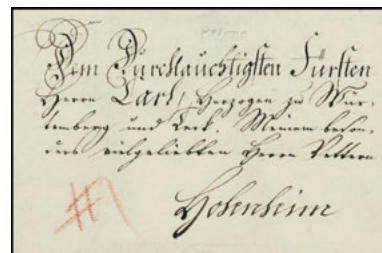 Dem Durchlauchtigsten Fürsten
Herrn Carl, Herzogen zu Wür-
temberg und Teck. Meinem beson-
ders vielgeliebten Herrn Vettern
Hohenheim